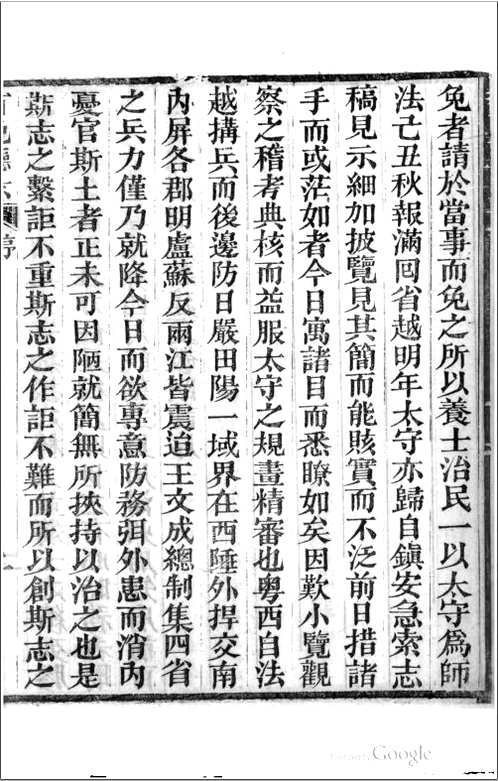 免者請於當事而免之所以養士治民一以太守爲師
法己丑秋報滿囘省越明年太守亦歸自鎮安急索志
稿見示細加披覽見其簡而能賅實而不泛前日措諸
手而或茫如者今日寓諸目而悉瞭如矣因歎小覽觀
察之稽考典核而益服太守之規畫精審也粤西自法
越搆兵而後邊防日嚴田陽一域界在西陲外捍交南
內屏各郡明盧蘇反兩江皆震迫王文成總制集四省
之兵力僅乃就降今日而欲專意防務弭外患而消內
憂官斯土者正未可因陋就簡無所挾持以治之也是
斯志之繫詎不重斯志之作詎不難而所以創斯志之
序
Google